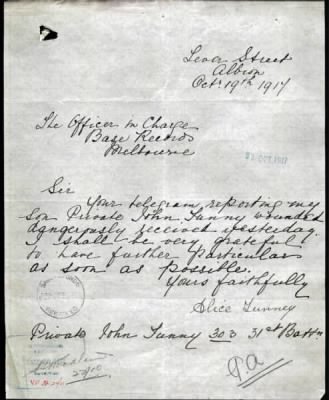 Lever Street
Albion
Oct. 19th 1917
The Officer in Charge
Base Records
Melbourne
Sir
Your telegram, reporting my
son Private John Tunny wounded
dangerously received yesterday.
I shall be very grateful
to have further particular
as soon as possible.
Yours faithfully
Alice Tunney
Private John Tunny 303 31st Battn
P.a